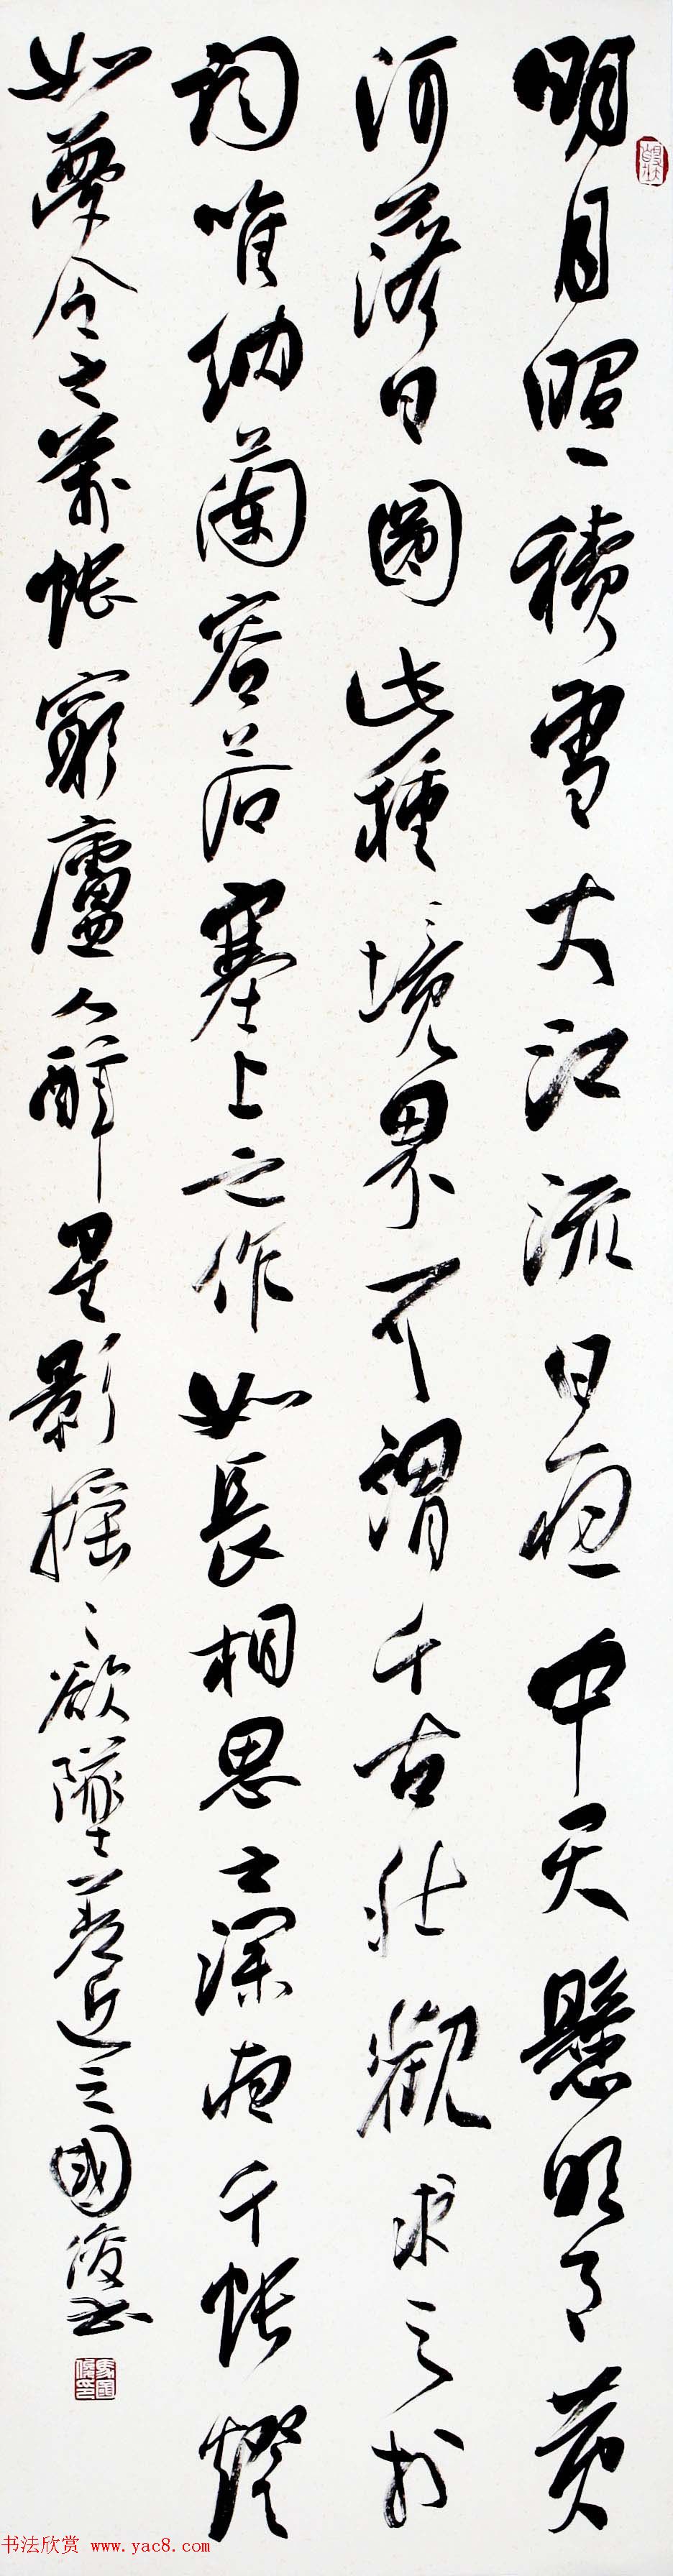 明月照積雪大江流日夜中天懸明月黃
河落日圓此種境界可謂千古壯觀求之於
詞唯納蘭容若塞上之作如長相思之深夜千帳燈
如夢令之萬帳穹廬人醉星影搖々欲墜差近之國俊書
书法欣赏 www.yac8.com